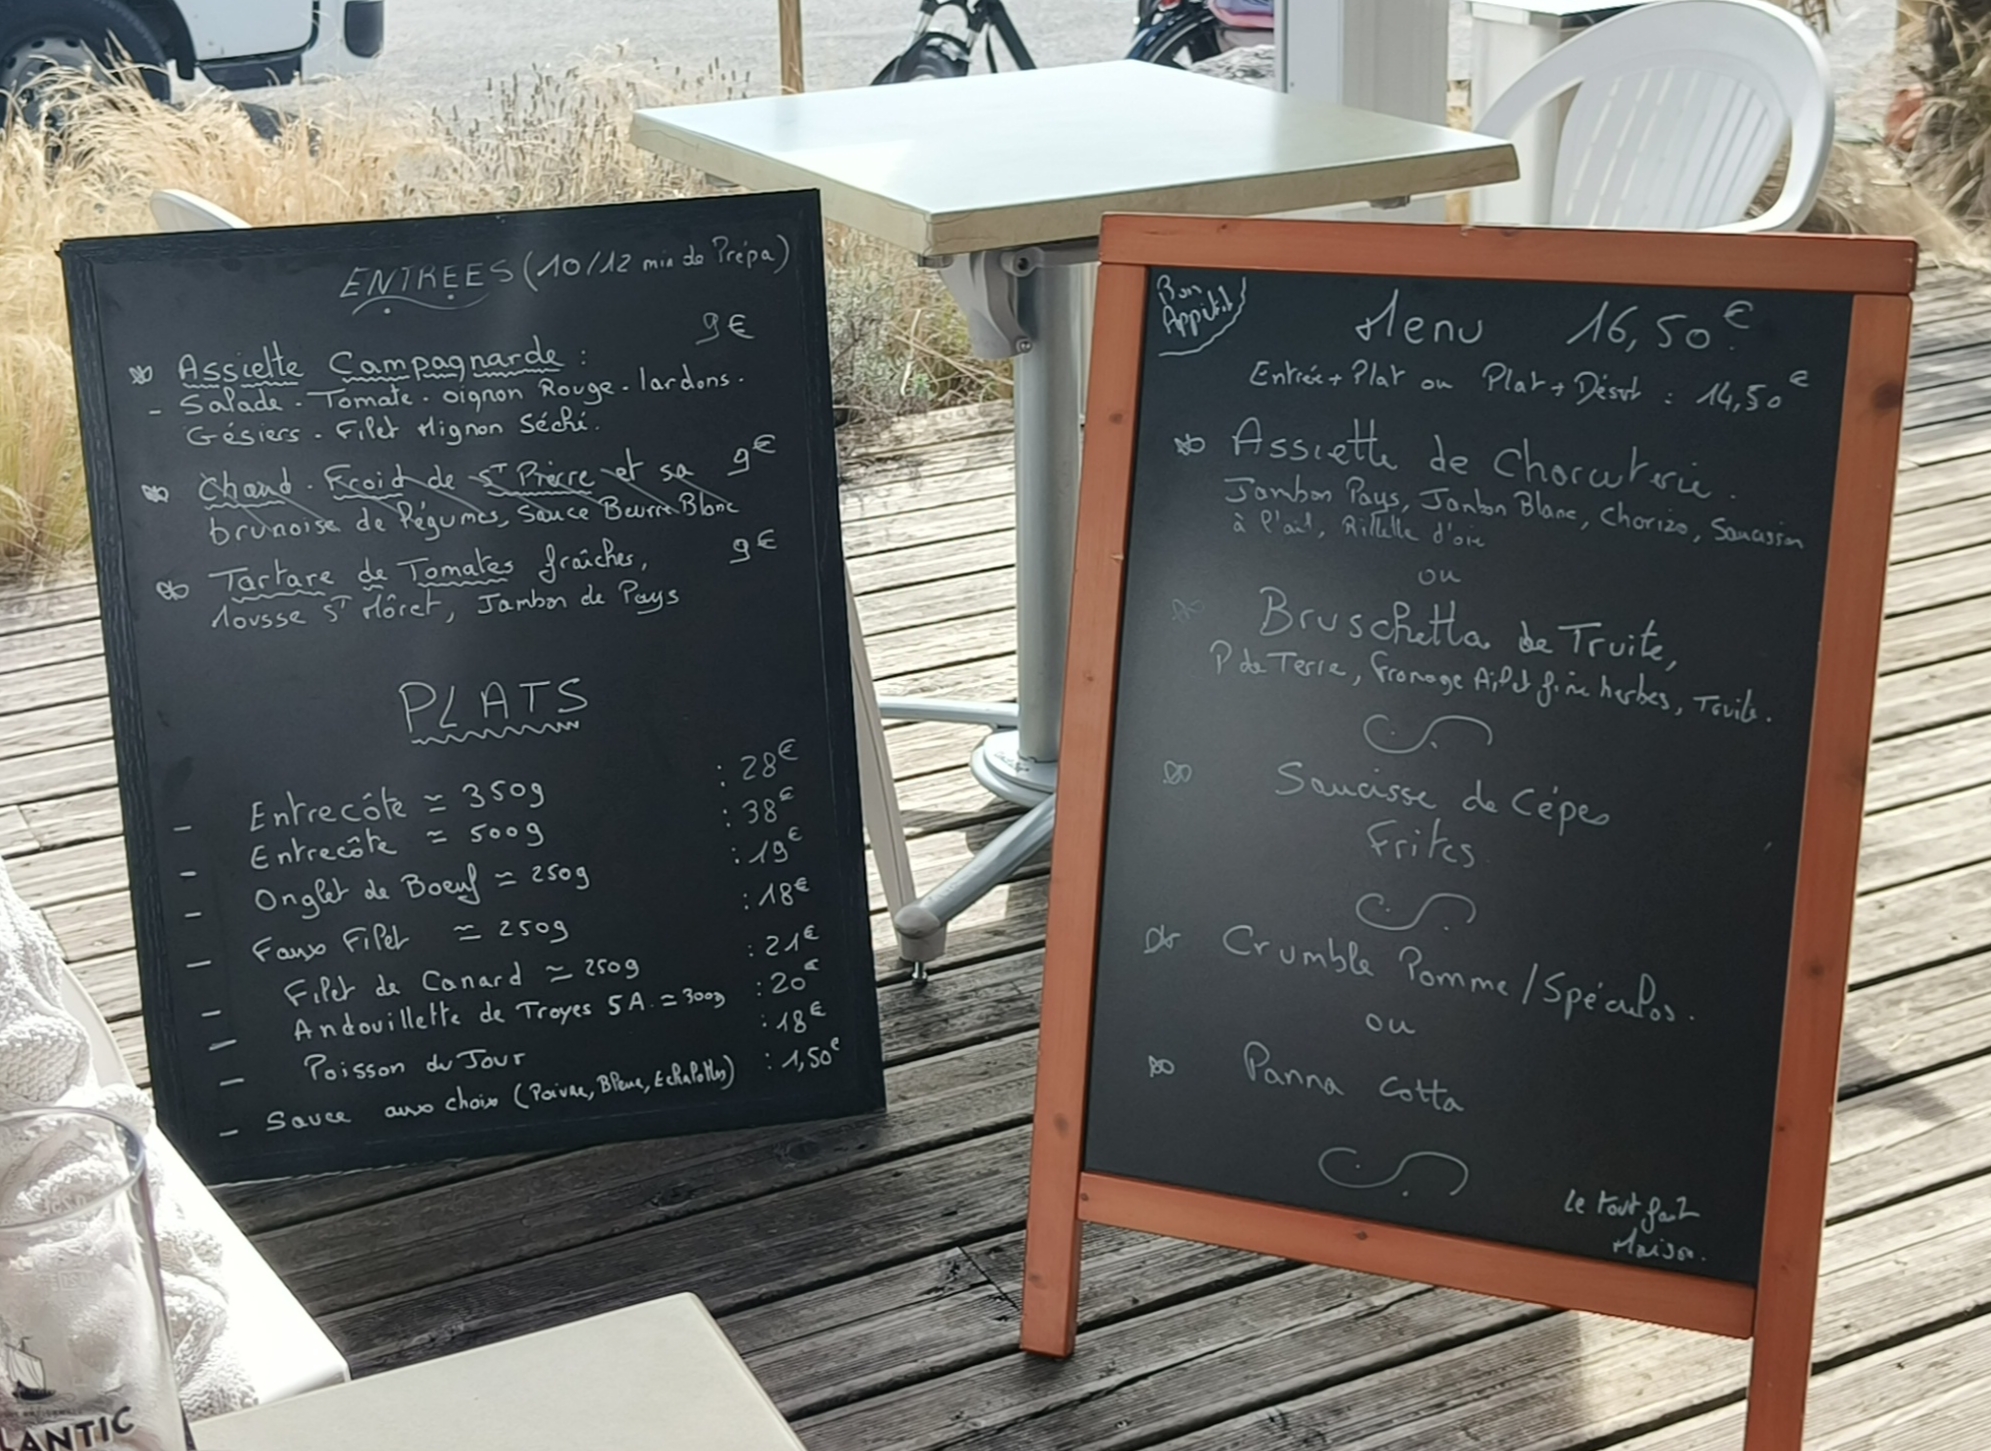 ENTREES (10/12 min de Prépa)
Assiette Campagnarde : 9€
- Salade - Tomate - oignon Rouge - lardons -
Gésiers - Filet Mignon Séché.
Chaud - Froid de St Pierre et sa 9€
brunoise de légumes, Sauce Beurre Blanc
Tartare de Tomates fraîches, 9€
Mousse St Môret, Jambon de Pays
PLATS
- Entrecôte ≃ 350g : 28€
- Entrecôte ≃ 500g : 38€
- Onglet de Boeuf ≃ 250g : 19€
- Faux Filet ≃ 250g : 18€
- Filet de Canard ≃ 250g : 21€
- Andouillette de Troyes 5A. ≃ 300g : 20€
- Poisson du Jour : 18€
- Sauce aux choix (Poivre, Bleue, Echalottes) : 1,50€
Bon
Appétit
Menu 16,50€
Entrée + Plat ou Plat + Désert : 14,50€
Assiette de Charcuterie.
Jambon Pays, Jambon Blanc, Chorizo, Saucisson
à l'ail, Rillette d'oie
ou
Bruschetta de Truite,
P de Terre, Fromage Ail et fine herbes, Truite.
Saucisse de Cépes
Frites
Crumble Pomme/Spéculos.
ou
Panna cotta
Le tout fait
Maison.
LANTIC